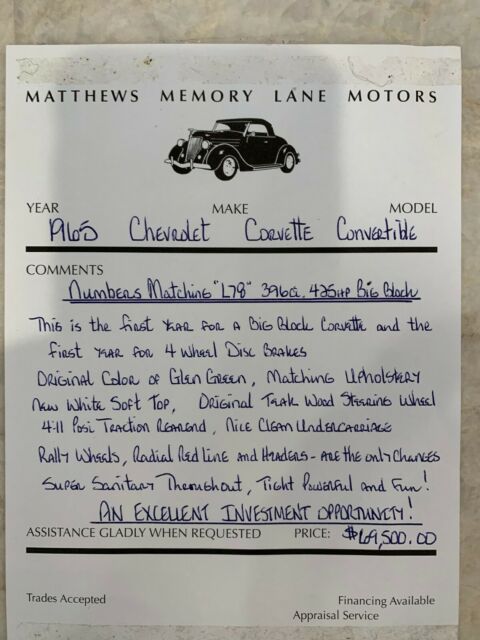 MATTHEWS MEMORY LANE MOTORS
YEAR MAKE MODEL
1965 Chevrolet Corvette Convertible
COMMENTS
Numbers Matching "L78" 396ci. 425HP Big Block
This is the first year for a Big Block Corvette and the
first year for 4 Wheel Disc Brakes
Original Color of Glen Green, Matching Upholstery
New White Soft Top, Original Teak Wood Steering Wheel
4:11 Posi Traction Rearend, Nice Clean Undercarriage
Rally Wheels, Radial Red Line and Headers - are the only Changes
Super Sanitary Throughout, Tight Powerful and Fun!
AN EXCELLENT INVESTMENT OPPORTUNITY!
ASSISTANCE GLADLY WHEN REQUESTED PRICE: $69,500.00
Trades Accepted Financing Available
Appraisal Service